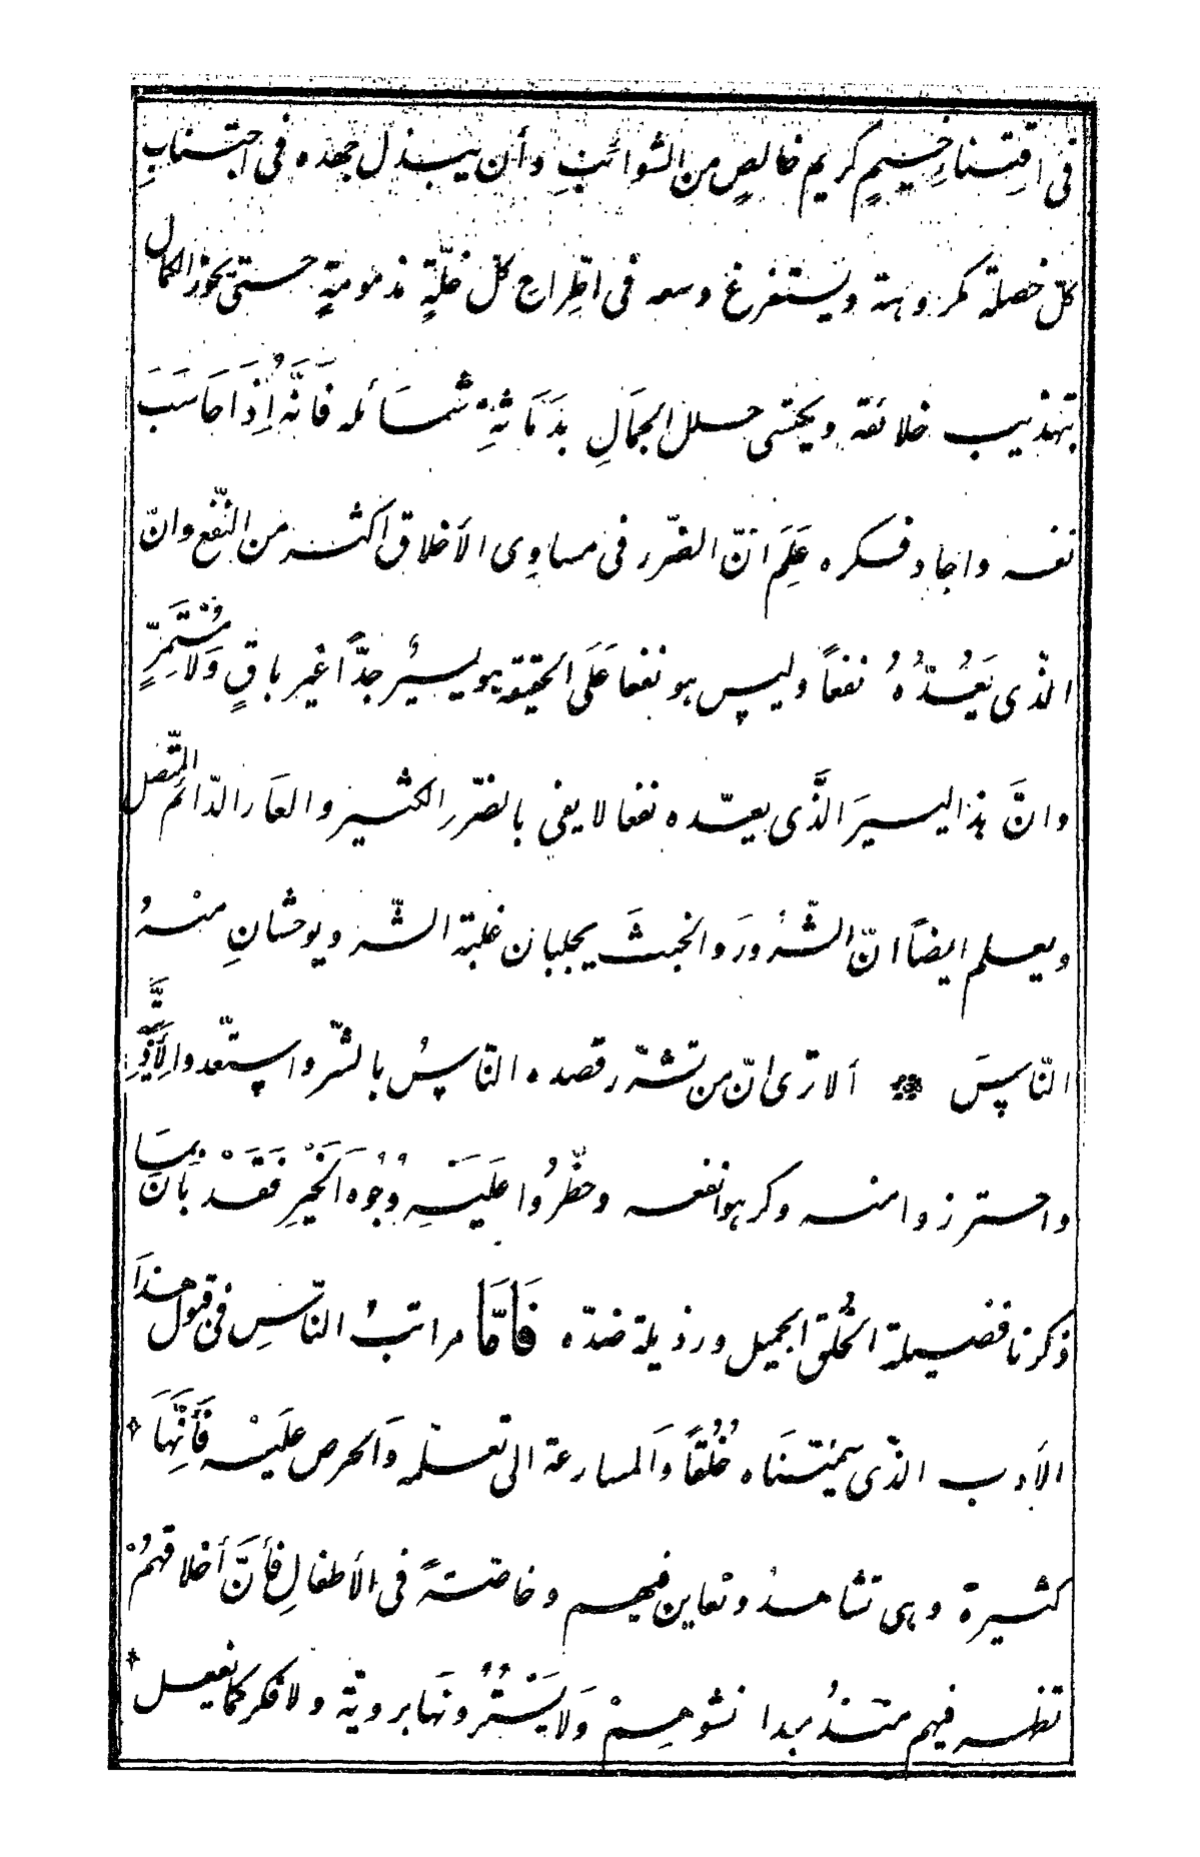 فى اقتناءِ خِيمٍ كريم خالصٍ من الشوائبِ وأن يبذل جهده فى اجتنابِ
كلّ خصلة مكروهة ويستفرغ وسعه فى اطِّراح كلّ خلّةٍ مذمومةٍ حتى يحوز الكمال
بتهذيب خلائقه ويكتسى حلل الجمَالِ بدَمَاثةِ شمَائله فَانَّهُ اِذَا حَاسَبَ
نفسه واجاد فكره عَلِمَ انّ الضّرر فى مساوِى الأخلاق اكثر من النّفع وانّ
الذّى يَعُدّهُ نفعاً وليس هو نفعا عَلَى الحقيقة هو يسيرٌ جدّاً غير باقٍ وَلا مُسْتَمِرٍّ
وانَّ هذا اليسيرَ الَّذى يعدّه نفعا لا يفى بالضّررِ الكثير والعَار الدّائم المتّصل
ويعلم ايضاً انّ الشّرورَ والخبثَ يجلبان غلبة الشّر ويوحشانِ منْهُ
النّاسَ ٭ ألا ترى انّ من تشرّر قصده النّاسُ بالشّر واستعّدوا لِأَذِيَّتِهِ
واحترزوا منه وكرهوا نفعه وحظّرُوا عَلَيْهِ وُجُوه الَخْيرِ فَقَدْ بَانَ بمَا
ذكرنا فضيلة الخُلق الجميل ورذيلة ضدّه فَامَّا مراتبُ النّاسِ فى قبول هذا
الأَدب الذّى سمّيْنَاه خُلُقاً وَالمسارعة الى تعلّمه وَالحرص عليْه فَأَنّهَا
كثيرة وهى تشاهدُ وتعاين فيهم وخاصّةً فى الأطفالِ فأنَّ أخلاقهمُْ
تظهر فيهم منذُ مبدا نشوهِمْ وَلا يَسْتُرُونَهَا بروية ولا فكر كما يفعل